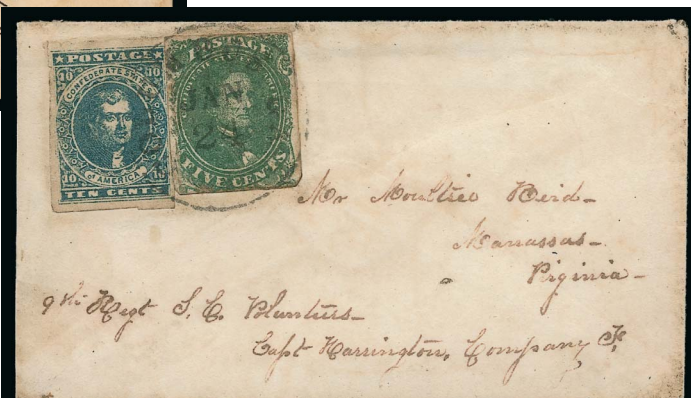 ★POSTAGE★
10 10
CONFEDERATE STATES
of AMERICA
10 10
TEN CENTS
POSTAGE
FIVE CENTS
JAN
24
Mr Moultrie Reid-
Manassas-
Virginia-
9th Regt S. C. Volunteers-
Capt Harrington, Company